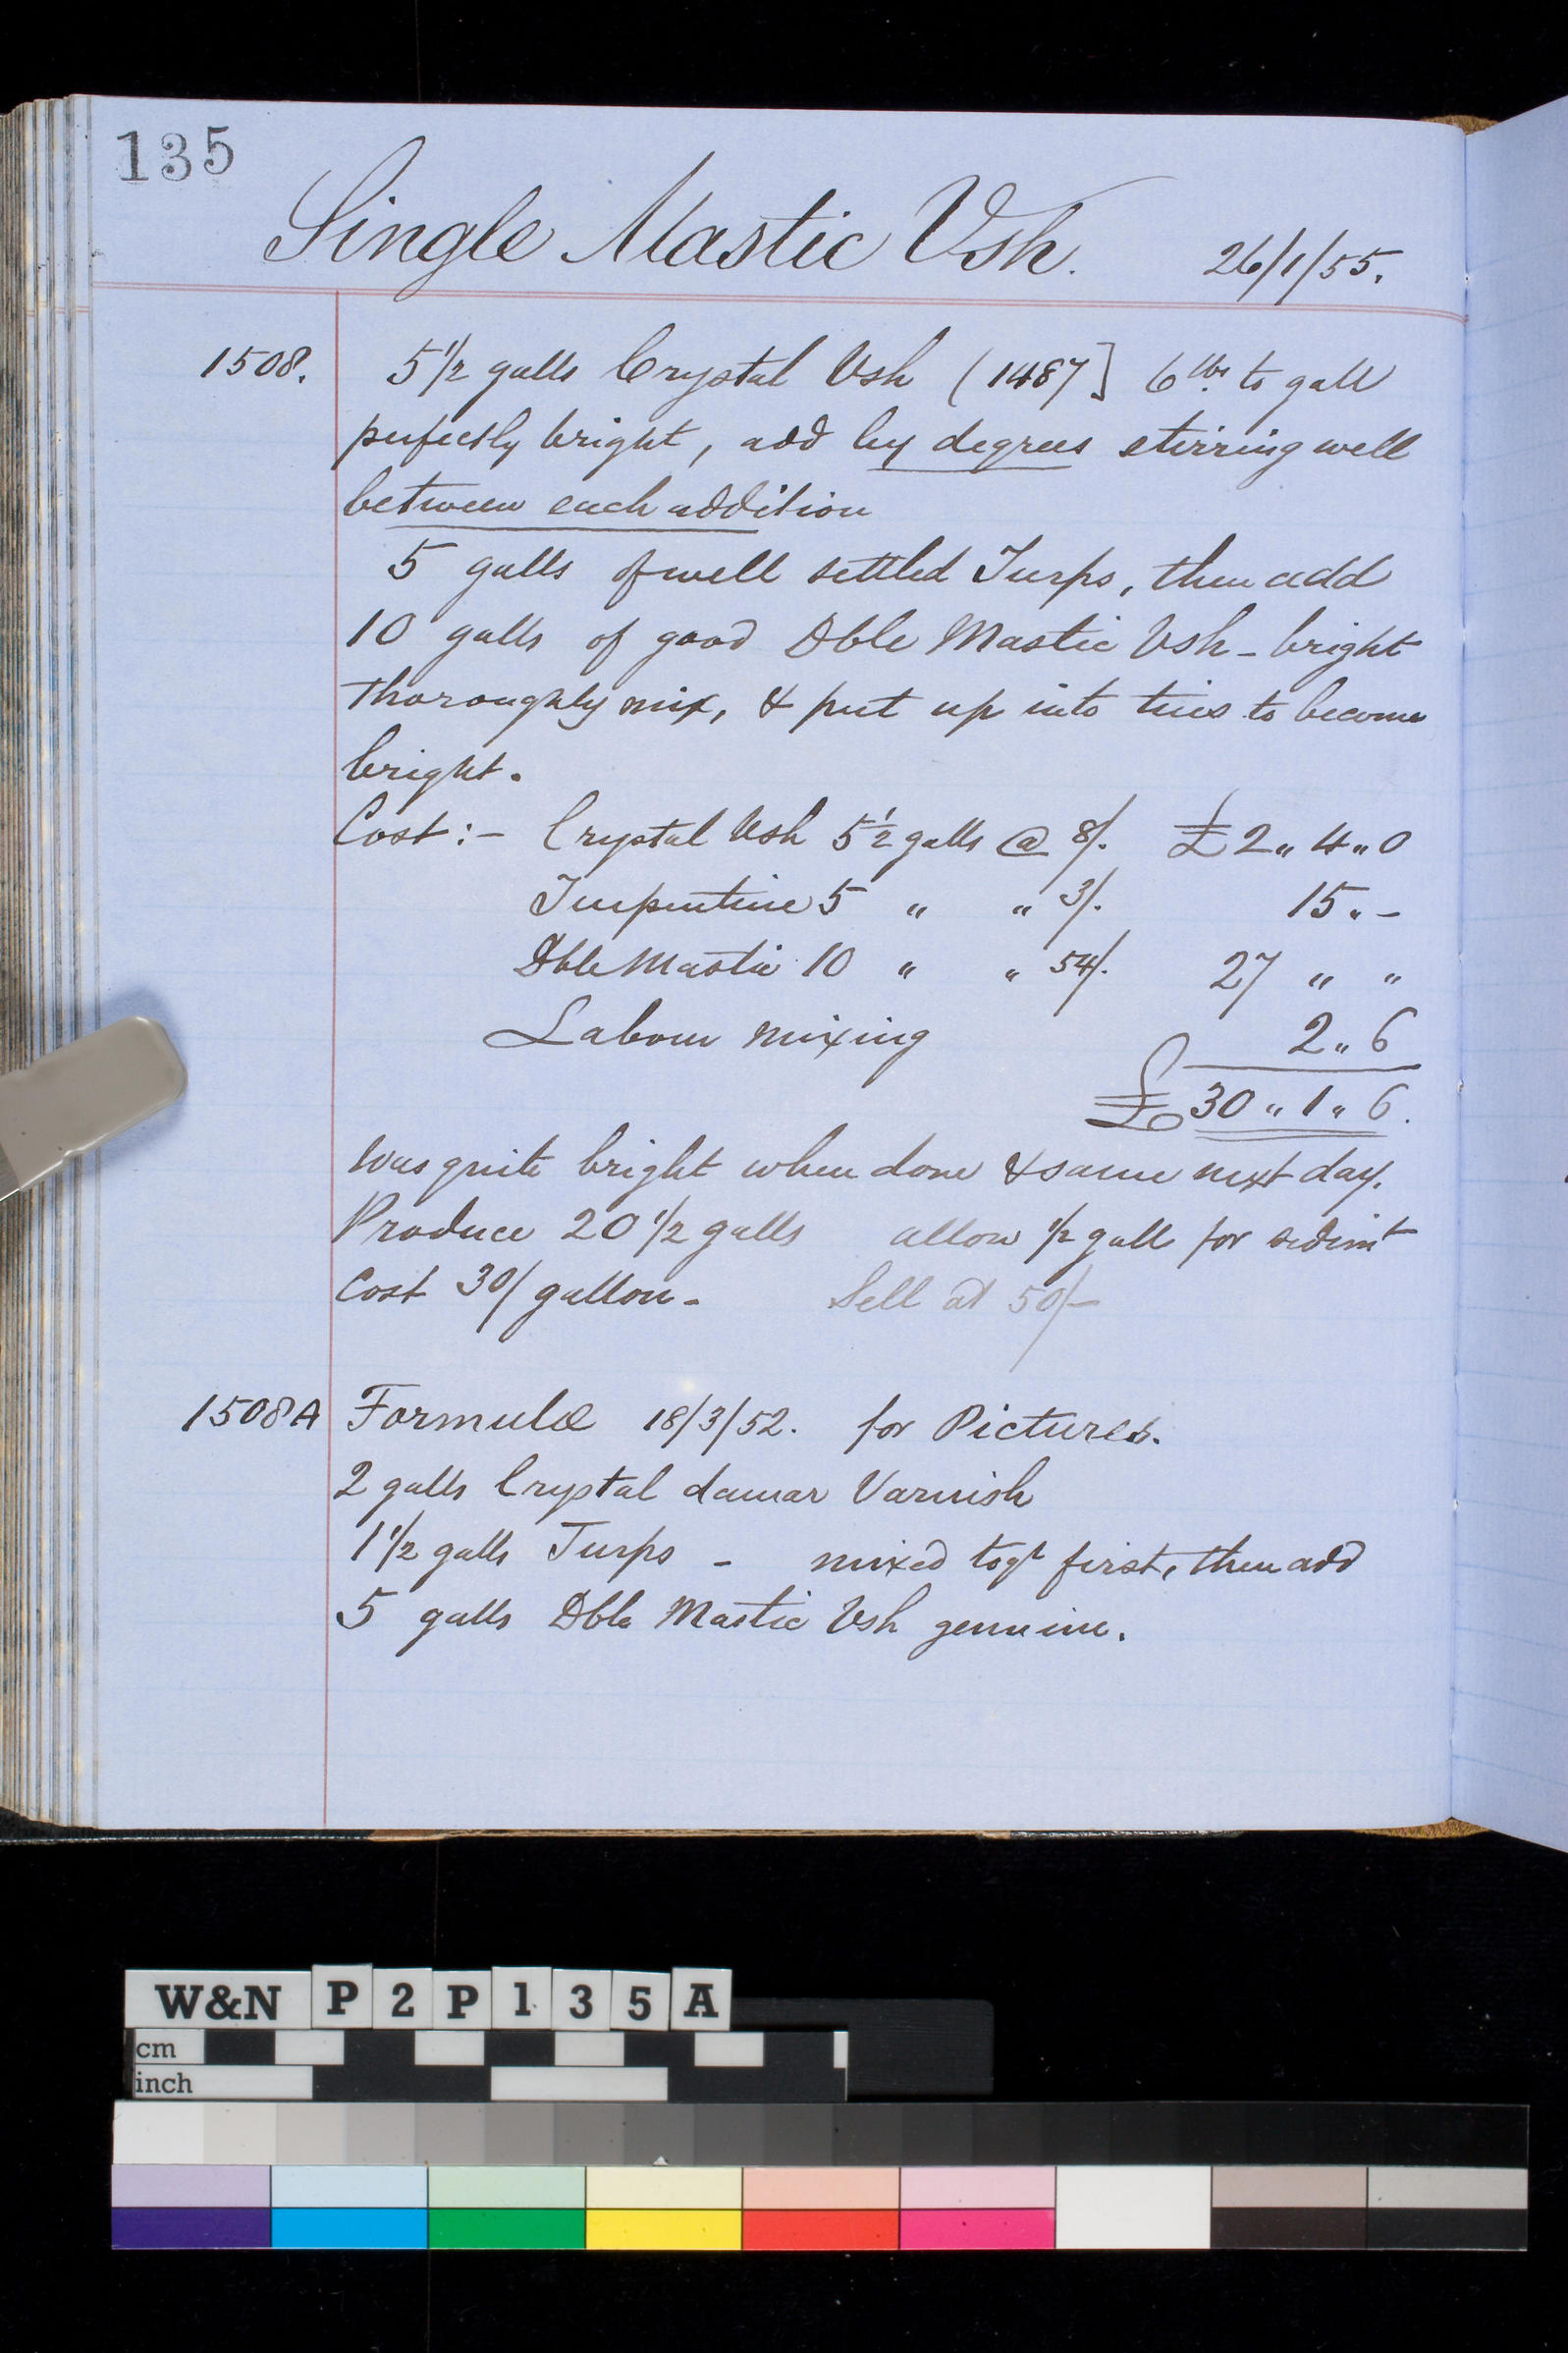 135
Single Mastic Vsh. 26/1/55.
1508. 5 1/2 galls Crystal Vsh (1487] 6 lbs to gall
perfectly bright, add by degrees stirring well
between each addition
5 galls of well settled Turps, then add
10 galls of good Dble Mastic Vsh - bright
thoroughly mix, & put up into tins to become
bright.
Cost:- Crystal Vsh 5 1/2 galls @ 8/. £2 " 4 " 0
Turpentine 5 " " 3/. 15 " -
Dble Mastic 10 " " 54/. 27 " "
Labour mixing 2 " 6
£30 " 1 " 6.
Was quite bright when done & same next day.
Produce 20 1/2 galls allow 1/2 gall for sedimt
Cost 30/ gallon - Sell at 50/-
1508A Formulæ 18/3/52. for Pictures.
2 galls Crystal damar Varnish
1 1/2 galls Turps - mixed togr first, then add
5 galls Dble Mastic Vsh genuine.
W&N P2P135A
cm
inch